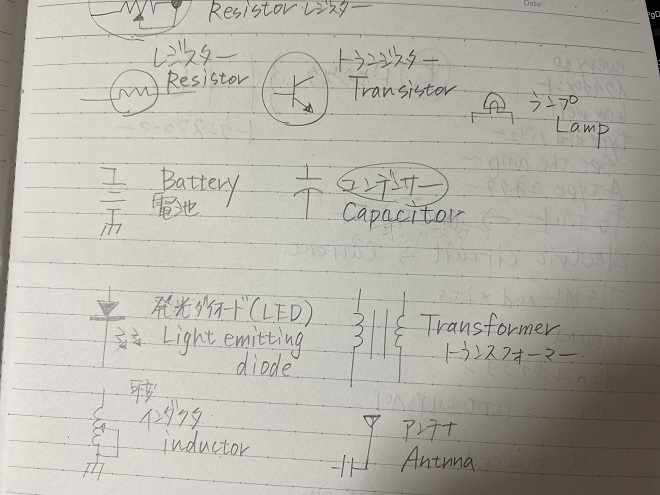 Resistor レジスター
レジスター
Resistor
トランジスター
Transistor
ランプ
Lamp
Battery
電池
コンデンサー
Capacitor
発光ダイオード(LED)
Light emitting
diode
Transformer
トランスフォーマー
インダクタ
inductor
アンテナ
Antnna